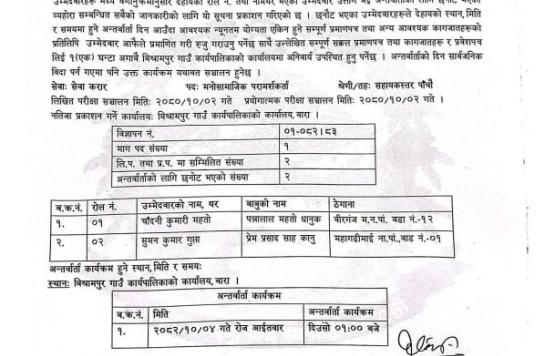 उम्मेदवारहरू मध्ये वर्णानुक्रमानुसार देहायका रोल नं. तथा नामथर भएका उम्मेदवार उत्तीर्ण भई अन्तर्वार्ताका लागि छनोट भएको
व्यहोरा सम्बन्धित सबैको जानकारीको लागि यो सूचना प्रकाशन गरिएको छ । छनौट भएका उम्मेदवारहरूले देहायको स्थान,मिति
र समयमा हुने अन्तर्वार्ता दिन आउँदा आवश्यक न्यूनतम योग्यता एकिन हुने सम्पूर्ण प्रमाणपत्र तथा अन्य आवश्यक कागजातहरूको
प्रतिलिपि उम्मेदवार आफैले प्रमाणित गरी रुजु गराउनु पर्नेछ साथै उल्लेखित सम्पूर्ण सक्कल प्रमाणपत्र तथा कागजातहरू र प्रवेशपत्र
लिई १(एक) घन्टा अगावै बिश्रामपुर गाउँ कार्यपालिकाको कार्यालयमा अनिवार्य उपस्थित हुनु पर्नेछ । अन्तर्वार्ताको दिन सार्वजनिक
बिदा पर्न गएमा पनि उक्त कार्यक्रम यथावत सञ्चालन हुनेछ ।
सेवाः सेवा करार पदः मनोसामाजिक परामर्शकर्ता श्रेणी/तहः सहायकस्तर पाँचौ
लिखित परीक्षा सञ्चालन मितिः २०८०/१०/०२ गते प्रयोगात्मक परीक्षा सञ्चालन मितिः २०८०/१०/०२ गते ।
नतिजा प्रकाशन गर्ने कार्यालयः बिश्रामपुर गाउँ कार्यपालिकाको कार्यालय, बारा ।
विज्ञापन नं. ०१-०८२।८३
माग पद संख्या १
लि.प. तथा प्र.प. मा सम्मिलित संख्या २
अन्तर्वार्ताको लागि छनोट भएको संख्या २
ब.क्र.नं. रोल नं. उम्मेदवारको नाम, थर बाबुको नाम ठेगाना
१. ०१ चाँदनी कुमारी महतो पन्नालाल महतो धानुक बीरगंज म.न.पा. वडा नं.-१२
२. ०२ सुमन कुमार गुप्ता प्रेम प्रसाद साह कानु महागढीमाई ना.पां.,वाड नं.-०१
अन्तर्वार्ता कार्यक्रम हुने स्थान,मिति र समयः
स्थानः बिश्रामपुर गाउँ कार्यपालिकाको कार्यालय,बारा ।
अन्तर्वार्ता कार्यक्रम
ब.क्र.नं. मिति अन्तर्वार्ता कार्यक्रम
१. २०८२/१०/०४ गते रोज आईतबार दिउसो ०१:०० बजे